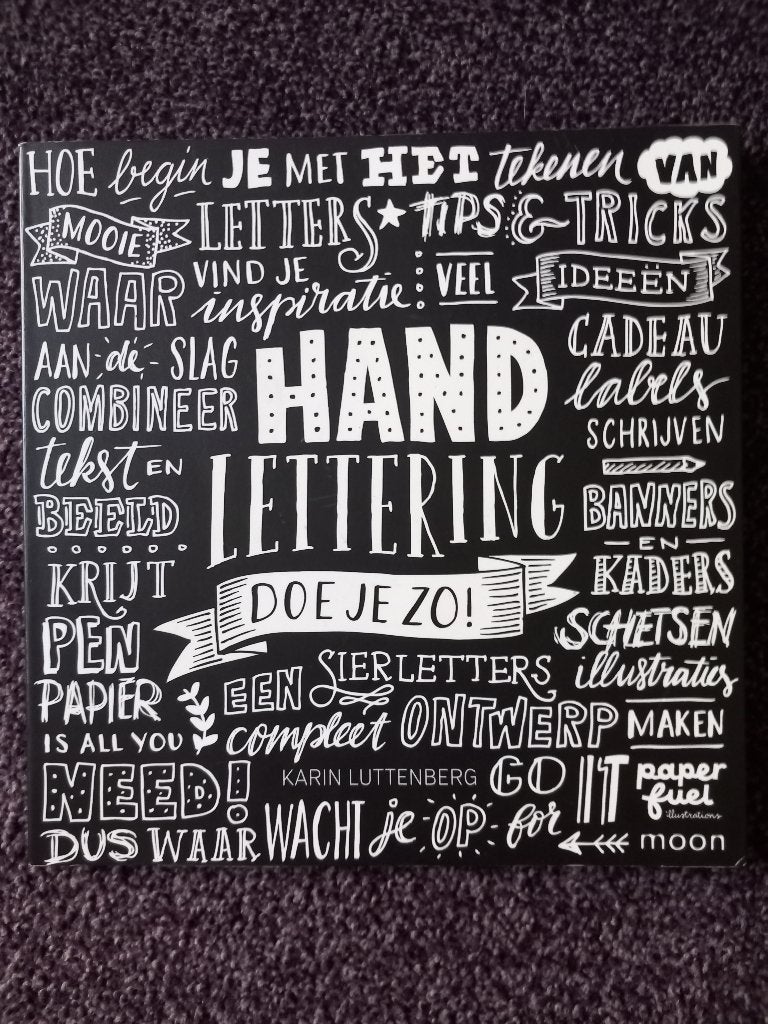 HOE begin JE MET HET tekenen VAN
MOOIE LETTERS TIPS & TRICKS
WAAR VIND JE inspiratie VEEL IDEEËN
AAN de SLAG
COMBINEER
tekst EN
BEELD
KRIJT
PEN
PAPIER
IS ALL YOU
NEED!
HAND
LETTERING
DOE JE ZO!
CADEAU
labels
SCHRIJVEN
BANNERS
EN
KADERS
SCHETSEN
illustraties
MAKEN
EEN SIERLETTERS
compleet ONTWERP
KARIN LUTTENBERG GO FOR IT
DUS WAAR WACHT je OP
paper
fuel
illustrations
moon